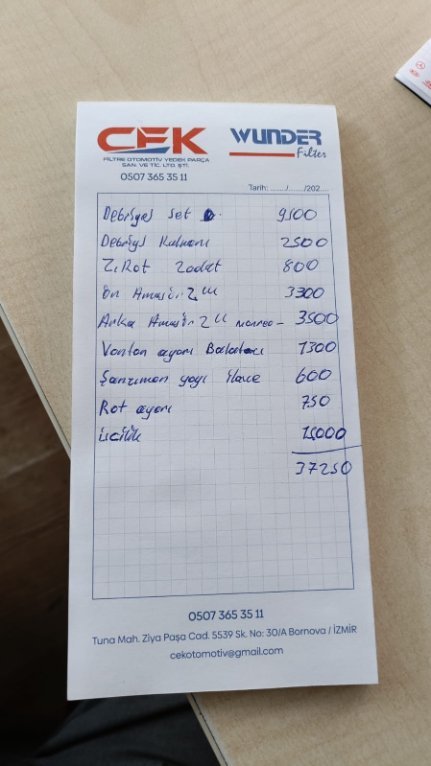 CEK
FİLTRE OTOMOTİV YEDEK PARÇA
SAN. VE TİC. LTD. ŞTİ.
0507 365 35 11
WUNDER
Filter
Tarih: ....../....../202....
Debriyaj Set 9500
Debriyaj 2500
Z.Rot 2 adet 800
Ön Amasör 2 li 3300
Arka Amasör 2 li monroe - 3500
ayarı 1300
Şanzıman yağı ilave 600
Rot ayarı 750
işcilik 15000
37250
0507 365 35 11
Tuna Mah. Ziya Paşa Cad. 5539 Sk. No: 30/A Bornova / İZMİR
cekotomotiv@gmail.com